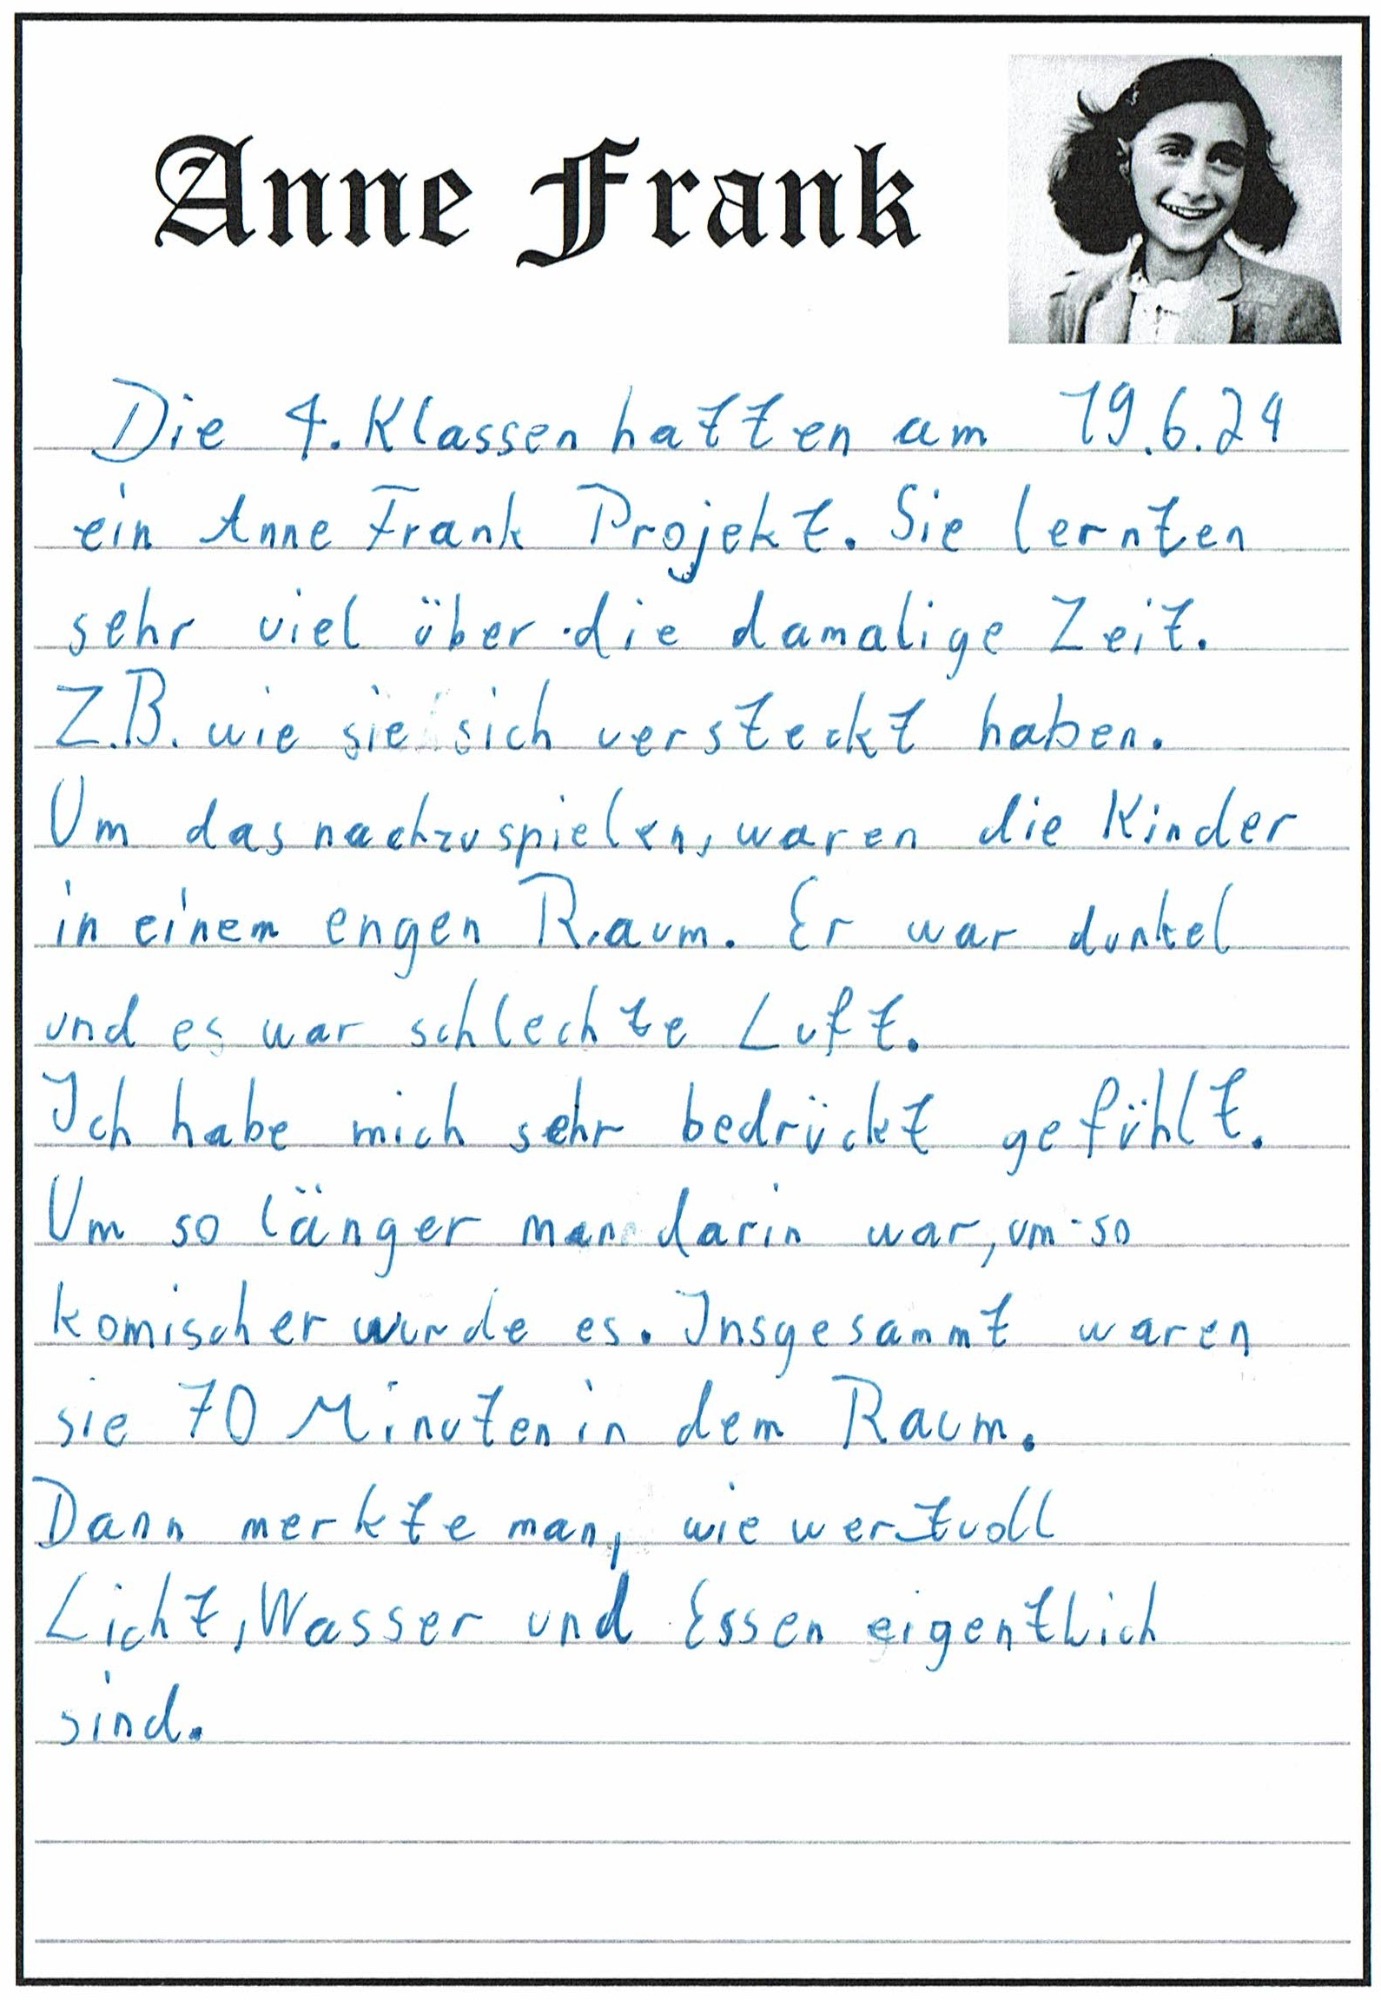 Anne Frank
Die 4. Klassen hatten am 19.6.24
ein Anne Frank Projekt. Sie lernten
sehr viel über die damalige Zeit.
Z.B. wie sie sich versteckt haben.
Um das nachzuspielen, waren die Kinder
in einem engen Raum. Er war dunkel
und es war schlechte Luft.
Ich habe mich sehr bedrückt gefühlt.
Um so länger man darin war, um so
komischer wurde es. Insgesammt waren
sie 70 Minuten in dem Raum.
Dann merkte man, wie wertvoll
Licht, Wasser und Essen eigentlich
sind.